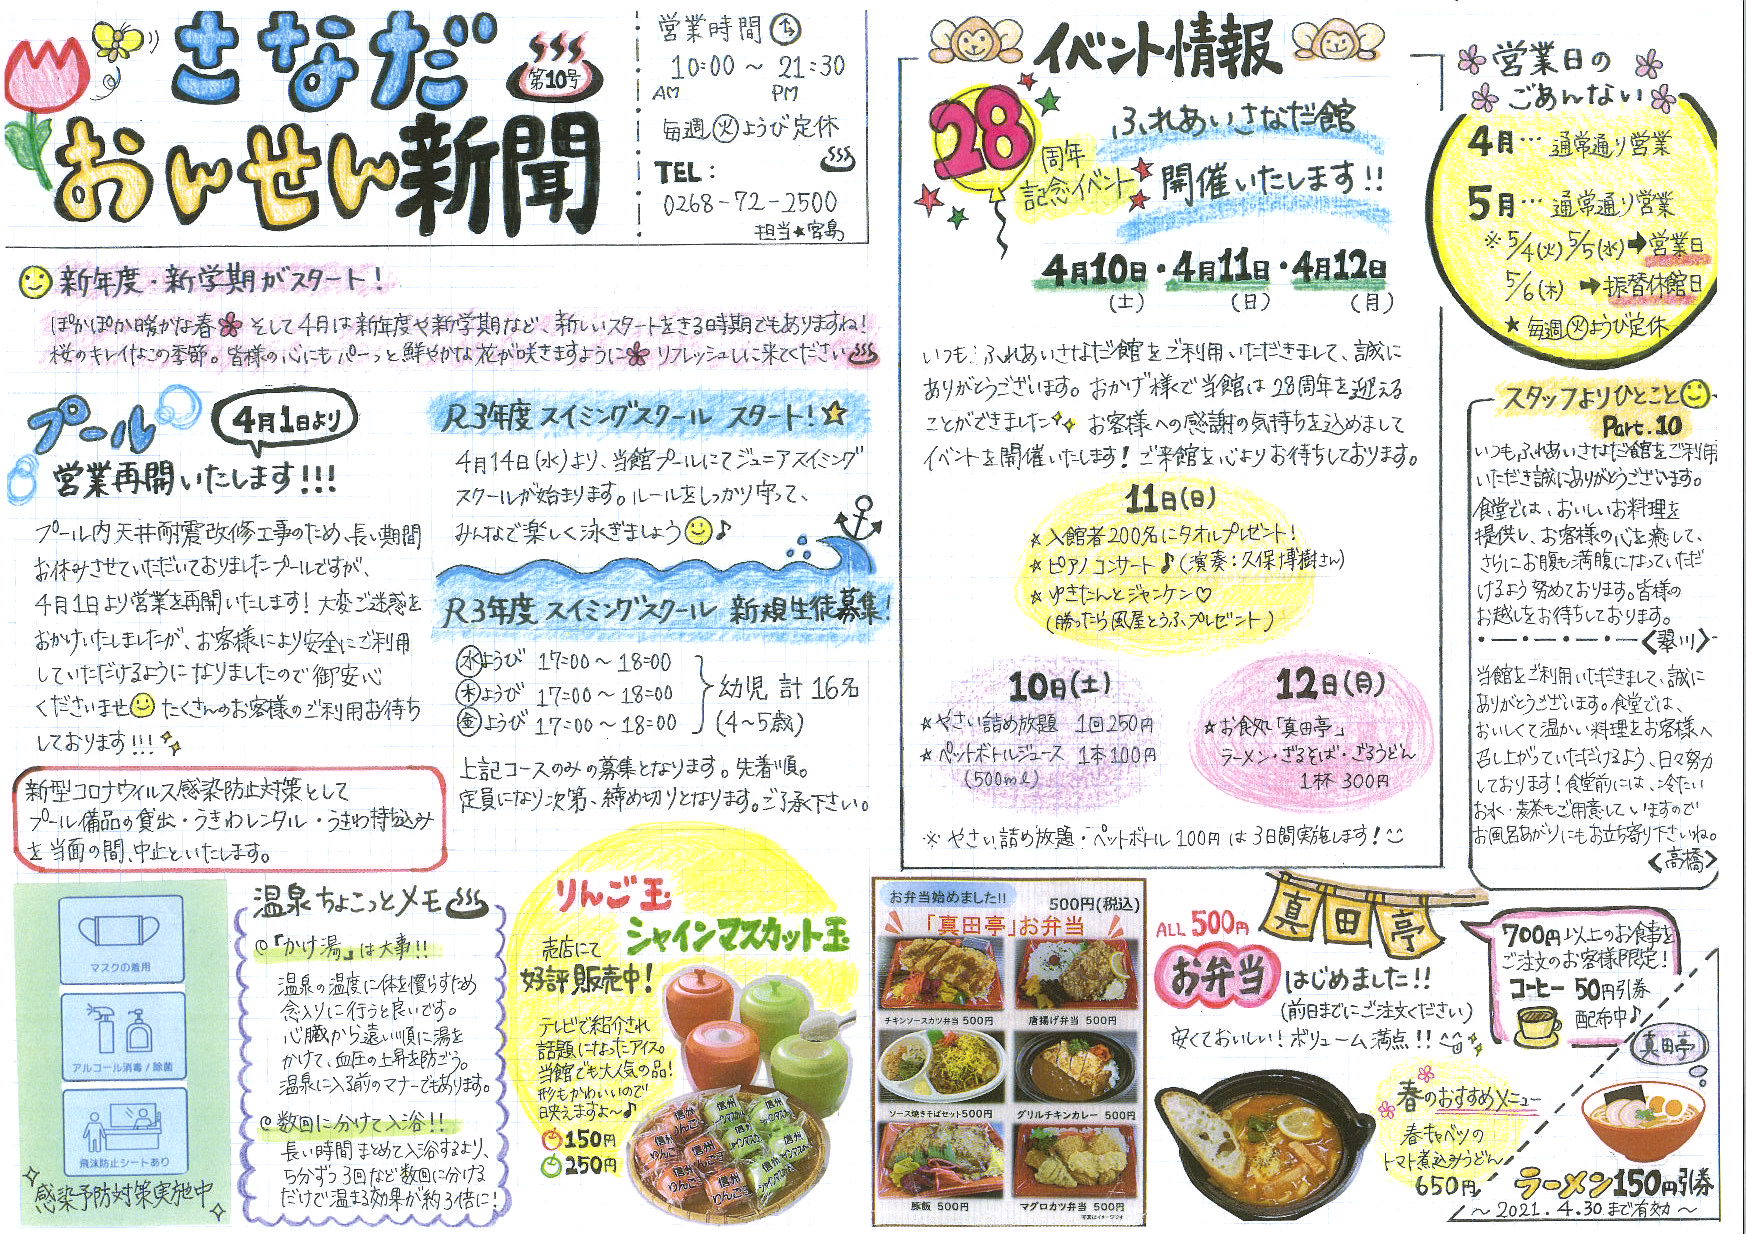 さなだ
おんせん新聞
第10号
営業時間
10:00 ～ 21:30
AM PM
毎週火ようび定休
TEL:
0268-72-2500
担当★宮島
新年度・新学期がスタート!
ぽかぽか暖かな春 そして4月は新年度や新学期など、新しいスタートをきる時期でもありますね!
桜のキレイなこの季節。皆様の心にもパーっと鮮やかな花が咲きますように リフレッシュしに来てください
プール
4月1日より
営業再開いたします!!!
プール内天井耐震改修工事のため、長い期間
お休みさせていただいておりましたプールですが、
4月1日より営業を再開いたします! 大変ご迷惑を
おかけいたしましたが、お客様により安全にご利用
していただけるようになりましたので御安心
くださいませ たくさんのお客様のご利用お待ち
しております!!!
新型コロナウィルス感染防止対策として
プール備品の貸出・うきわレンタル・うきわ持ち込み
を当面の間、中止といたします。
R3年度 スイミングスクール スタート!☆
4月14日(水)より、当館プールにてジュニアスイミング
スクールが始まります。ルールをしっかり守って、
みんなで楽しく泳ぎましょう♪
R3年度 スイミングスクール 新規生徒募集!
水ようび 17:00～18:00
木ようび 17:00～18:00
金ようび 17:00～18:00
幼児 計16名
(4～5歳)
上記コースのみの募集となります。先着順。
定員になり次第、締め切りとなります。ご了承下さい。
マスクの着用
アルコール消毒/除菌
飛沫防止シートあり
感染予防対策実施中
温泉ちょこっとメモ
◎『かけ湯』は大事!!
温泉の温度に体を慣らすため
念入りに行うと良いです。
心臓から遠い順に湯を
かけて、血圧の上昇を防ごう。
温泉に入る前のマナーでもあります。
◎数回に分けて入浴!!
長い時間まとめて入浴するより、
5分ずつ3回など数回に分ける
だけで温まる効果が約3倍に!
りんご玉
シャインマスカット玉
売店にて
好評販売中!
テレビで紹介され
話題になったアイス。
当館でも大人気の品!
形もかわいいので
映えますよ～♪
150円
250円
イベント情報
28
周年
記念イベント
ふれあいさなだ館
開催いたします!!
4月10日・4月11日・4月12日
(土) (日) (月)
いつもふれあいさなだ館をご利用いただきまして、誠に
ありがとうございます。おかげ様で当館は28周年を迎える
ことができました お客様への感謝の気持ちを込めまして
イベントを開催いたします! ご来館を心よりお待ちしております。
11日(日)
★入館者200名にタオルプレゼント!
★ピアノコンサート♪(演奏:久保博樹さん)
★ゆきたんとジャンケン♡
(勝ったら風屋とうふプレゼント)
10日(土)
★やさい詰め放題 1回250円
★ペットボトルジュース 1本100円
(500ml)
12日(月)
★お食処「真田亭」
ラーメン・ざるそば・ざるうどん
1杯 300円
※やさい詰め放題・ペットボトル100円は3日間実施します!
営業日の
ごあんない
4月…通常通り営業
5月…通常通り営業
※5/4(火)5/5(水)➡営業日
5/6(木)➡振替休館日
★毎週火ようび定休
スタッフよりひとこと
Part.10
いつもふれあいさなだ館をご利用
いただき誠にありがとうございます。
食堂では、おいしいお料理を
提供し、お客様の心を癒して、
さらにお腹も満腹になっていただ
けるよう努めております。皆様の
お越しをお待ちしております。
<翠川>
当館をご利用いただきまして、誠に
ありがとうございます。食堂では、
おいしくて温かい料理をお客様へ
召し上がっていただけるよう、日々努力
しております!食堂前には、冷たい
お水・麦茶もご用意していますので
お風呂あがりにもお立ち寄り下さいね。
<高橋>
お弁当始めました!!
500円(税込)
「真田亭」お弁当
チキンソースカツ弁当 500円
唐揚げ弁当 500円
ソース焼きそばセット500円
グリルチキンカレー 500円
豚飯 500円
マグロカツ弁当 500円
写真はイメージです
真田亭
ALL 500円
お弁当 はじめました!!
(前日までにご注文ください)
安くておいしい!ボリューム満点!!
700円以上のお食事を
ご注文のお客様限定!
コーヒー 50円引券
配布中♪
真田亭
春のおすすめメニュー
春キャベツの
トマト煮込みうどん
650円
ラーメン150円引券
～2021.4.30まで有効～